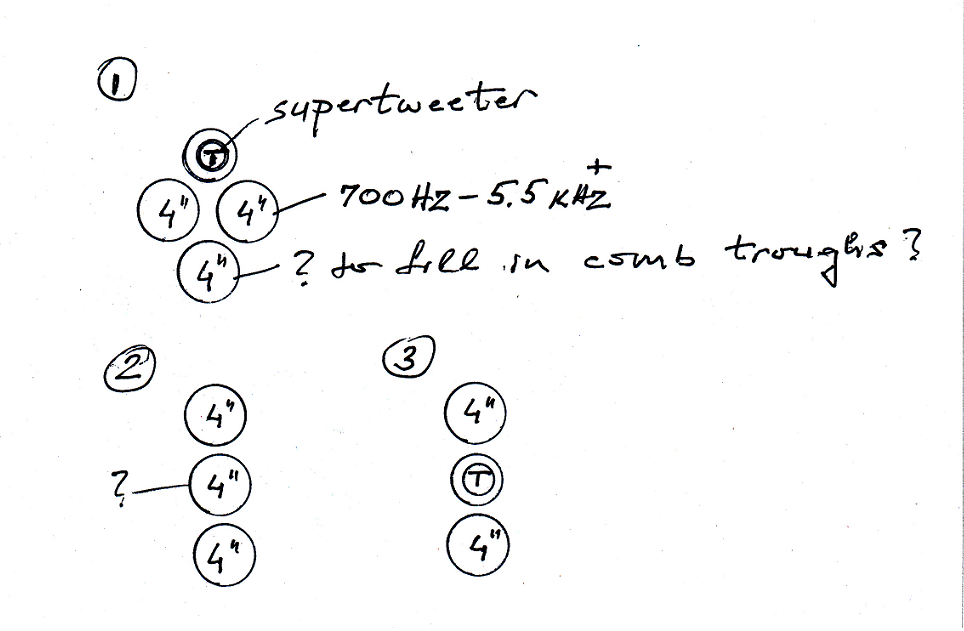 1
supertweeter
T
4" 4" 700 HZ - 5.5 KHZ +
4" ? to fill in comb troughs ?
2 3
4" 4"
? 4" T
4" 4"